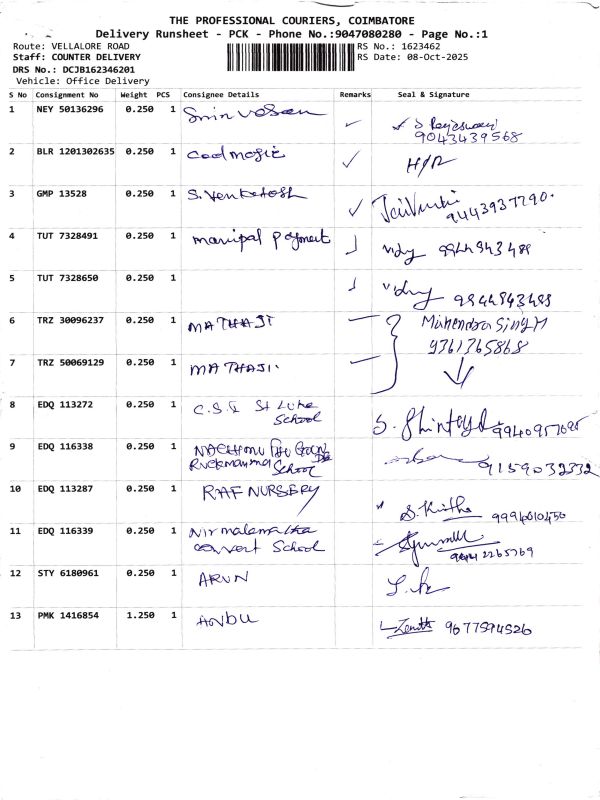 THE PROFESSIONAL COURIERS, COIMBATORE
Delivery Runsheet - PCK - Phone No.:9047080280 - Page No.:1
Route: VELLALORE ROAD
RS No.: 1623462
Staff: COUNTER DELIVERY
RS Date: 08-Oct-2025
DRS No.: DCJB162346201
Vehicle: Office Delivery
S No Consignment No Weight PCS Consignee Details Remarks Seal & Signature
1 NEY 50136296 0.250 1 Srinivasan
9043439568
2 BLR 1201302635 0.250 1 Coolmagic H/R
3 GMP 13528 0.250 1 S. Venkatesh
9443937790.
4 TUT 7328491 0.250 1 manipal payment 9944843488
5 TUT 7328650 0.250 1 9944843488
6 TRZ 30096237 0.250 1 MATHAJI Mahendra Singh
9361365868
7 TRZ 50069129 0.250 1 MATHAJI.
8 EDQ 113272 0.250 1 C.S.I St Luke
School
9940957695
9 EDQ 116338 0.250 1
School
9159032332
10 EDQ 113287 0.250 1 RAF NURSERY
9994010450
11 EDQ 116339 0.250 1 Nirmalamatha
convent School
12 STY 6180961 0.250 1 ARUN
13 PMK 1416854 1.250 1 ANBU 9677594526